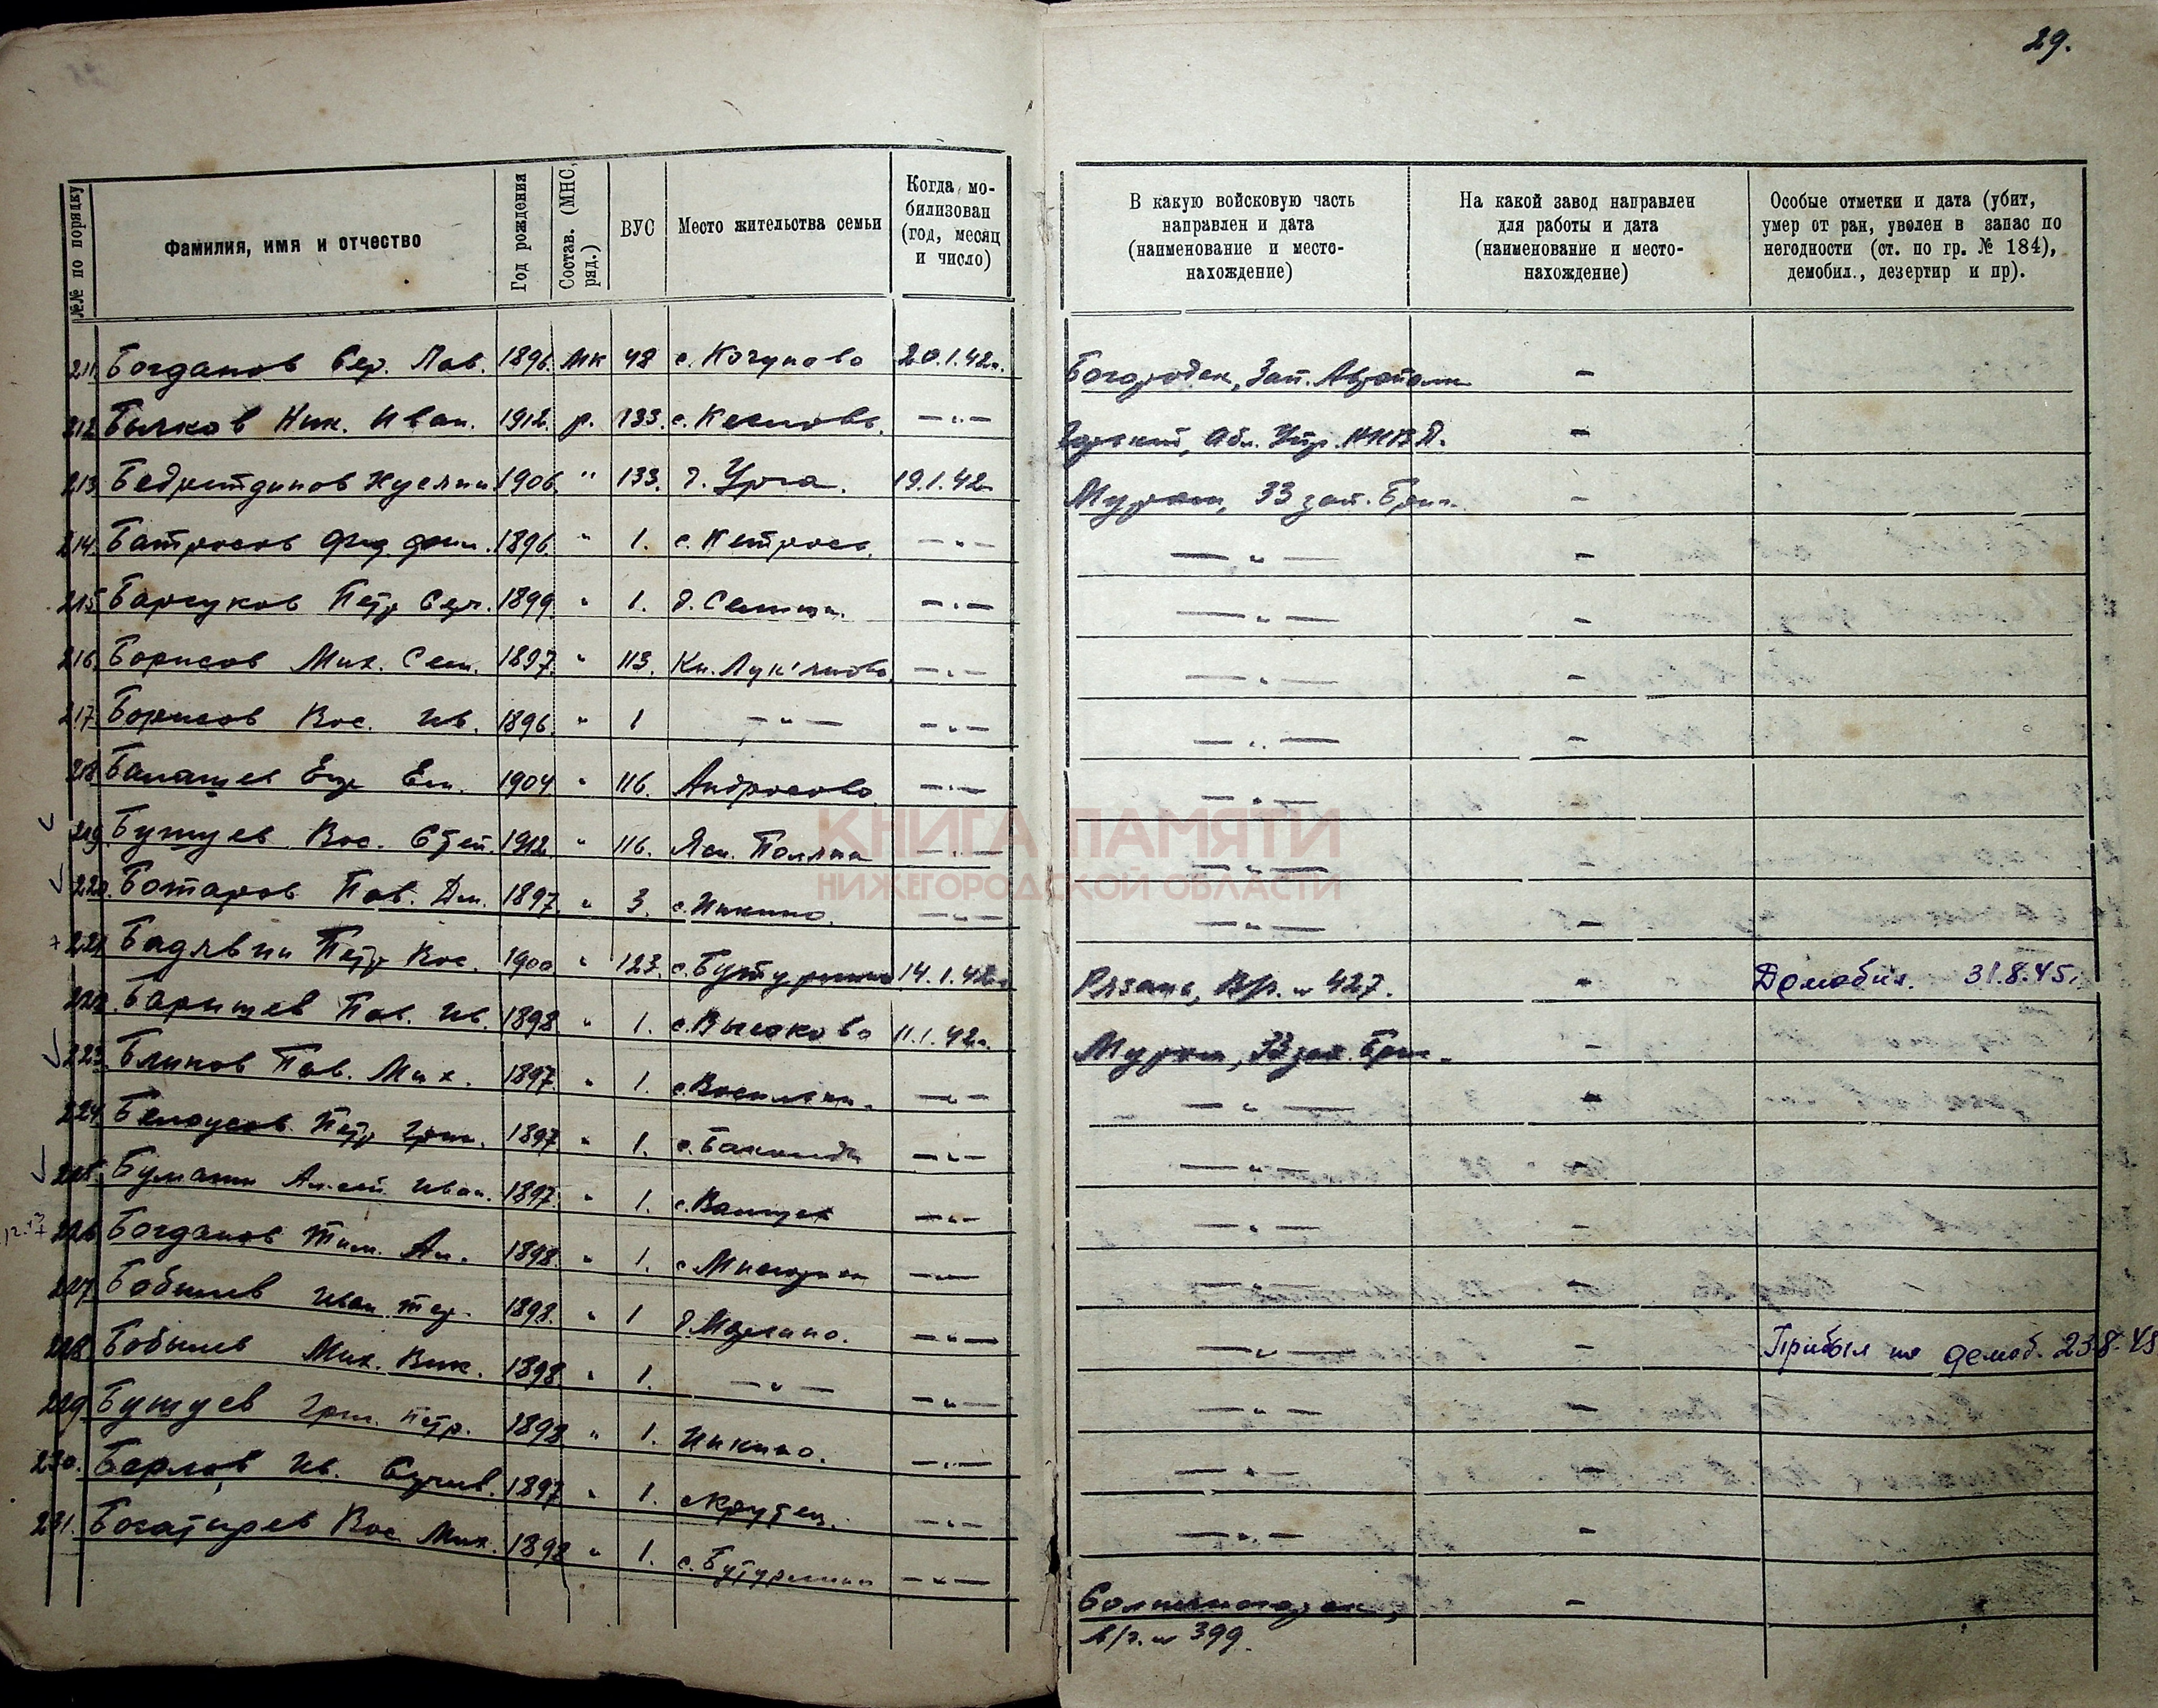 29.
№№ по порядку
Фамилия, имя и отчество
Год рождения
Состав. (МНС, ряд.)
ВУС
Место жительства семьи
Когда мо-
билизован
(год, месяц
и число)
В какую войсковую часть
направлен и дата
(наименование и место-
нахождение)
На какой завод направлен
для работы и дата
(наименование и место-
нахождение)
Особые отметки и дата (убит,
умер от ран, уволен в запас по
негодности (ст. по гр. № 184),
демобил., дезертир и пр).
211. Богданов Сер. Пав. 1896. МК 48 с. Кочуново 20.1.42г. Богородск, Зап. Автополк –
212 Бычков Ник. Иван. 1912. р. 133. с. –"– Горький, Обл. Упр. НКВД. –
213. Бедретдинов 1906. " 133. д. Урга. 19.1.42 Муром, 33 зап. Бриг. –
214. Батросов 1896. " 1. –"– –"– –
215. Барсуков Петр Серг. 1899. " 1. –"– –"– –
216. Борисов Мих. Сем. 1897. " 113. Кн. –"– –"– –
217. Борисов Вас. Ив. 1896. " 1 –"– –"– –"– –
218. Балашев Егр Ем. 1904 " 116. Андросово. –"– –"– –
219. Бушуев Вас. Степ. 1912. " 116. Ясн. Поляна –"– –"– –
220. Пав. Дм. 1897. " 3. с. Инкино. –"– –"– –
221. Петр Вас. 1900 " 123. с. Бутурлино 14.1.42г. Рязань, В/ч. № 427. – Демобил. 31.8.45г.
222. Барышев Пав. Ив. 1898. " 1. с. Высоково 11.1.42г. Муром, 33 зап. Бриг. –
223. Блинов Пав. Мих. 1897. " 1. –"– –"– –
224. Белоусов Петр Григ. 1897 " 1. с. Бакалды –"– –"– –
225. Алексей Иван. 1897. " 1. –"– –"– –
226. Богданов Тим. Ал. 1898. " 1. –"– –"– –
227. Бобылев Иван 1898. " 1 –"– –"– – Прибыл по демоб. 23.8.45
228. Бобылев Мих. Вик. 1898 " 1. –"– –"– –"– –
229. Бушуев Григ. Петр. 1898 " 1. Инкино. –"– –"– –
230. Ив. 1897 " 1. с. Крутец. –"– –"– –
231. Богатырев Вас. Мих. 1898 " 1. с. Бутурлино –"– Солнечногорск, –
в/ч. № 399.
КНИГА ПАМЯТИ
НИЖЕГОРОДСКОЙ ОБЛАСТИ